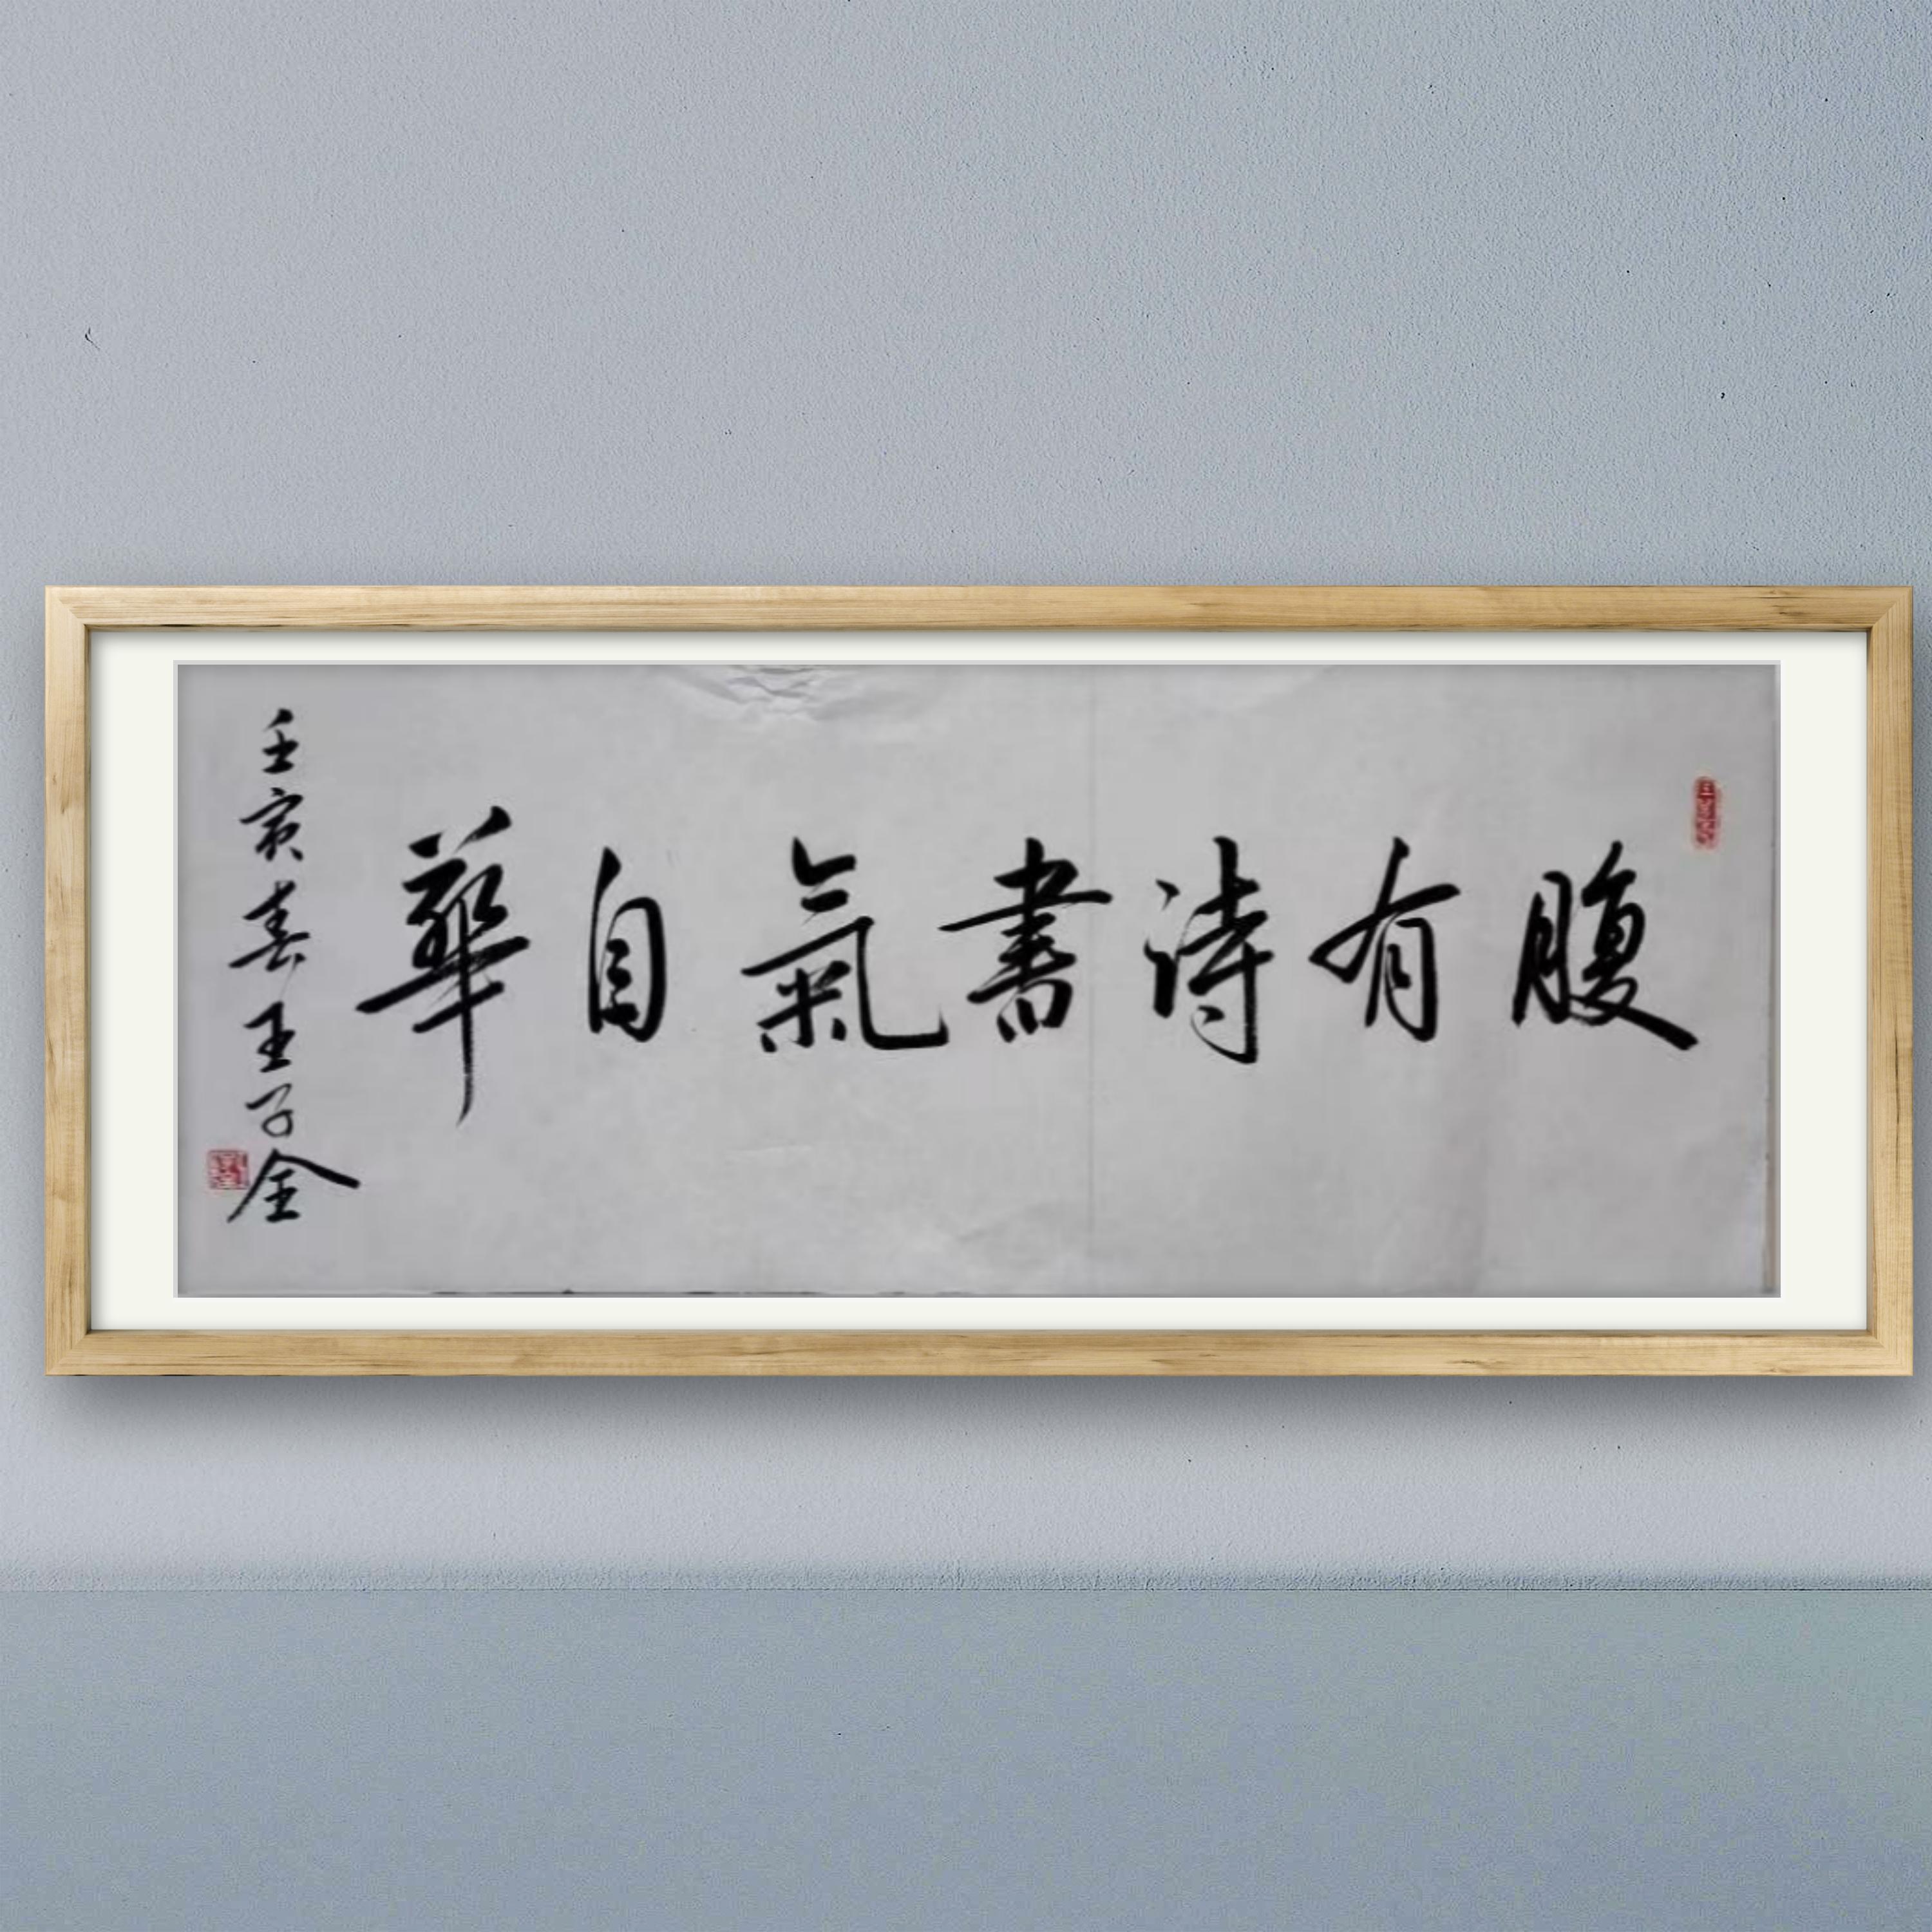 腹有詩書氣自華
壬寅春王子全